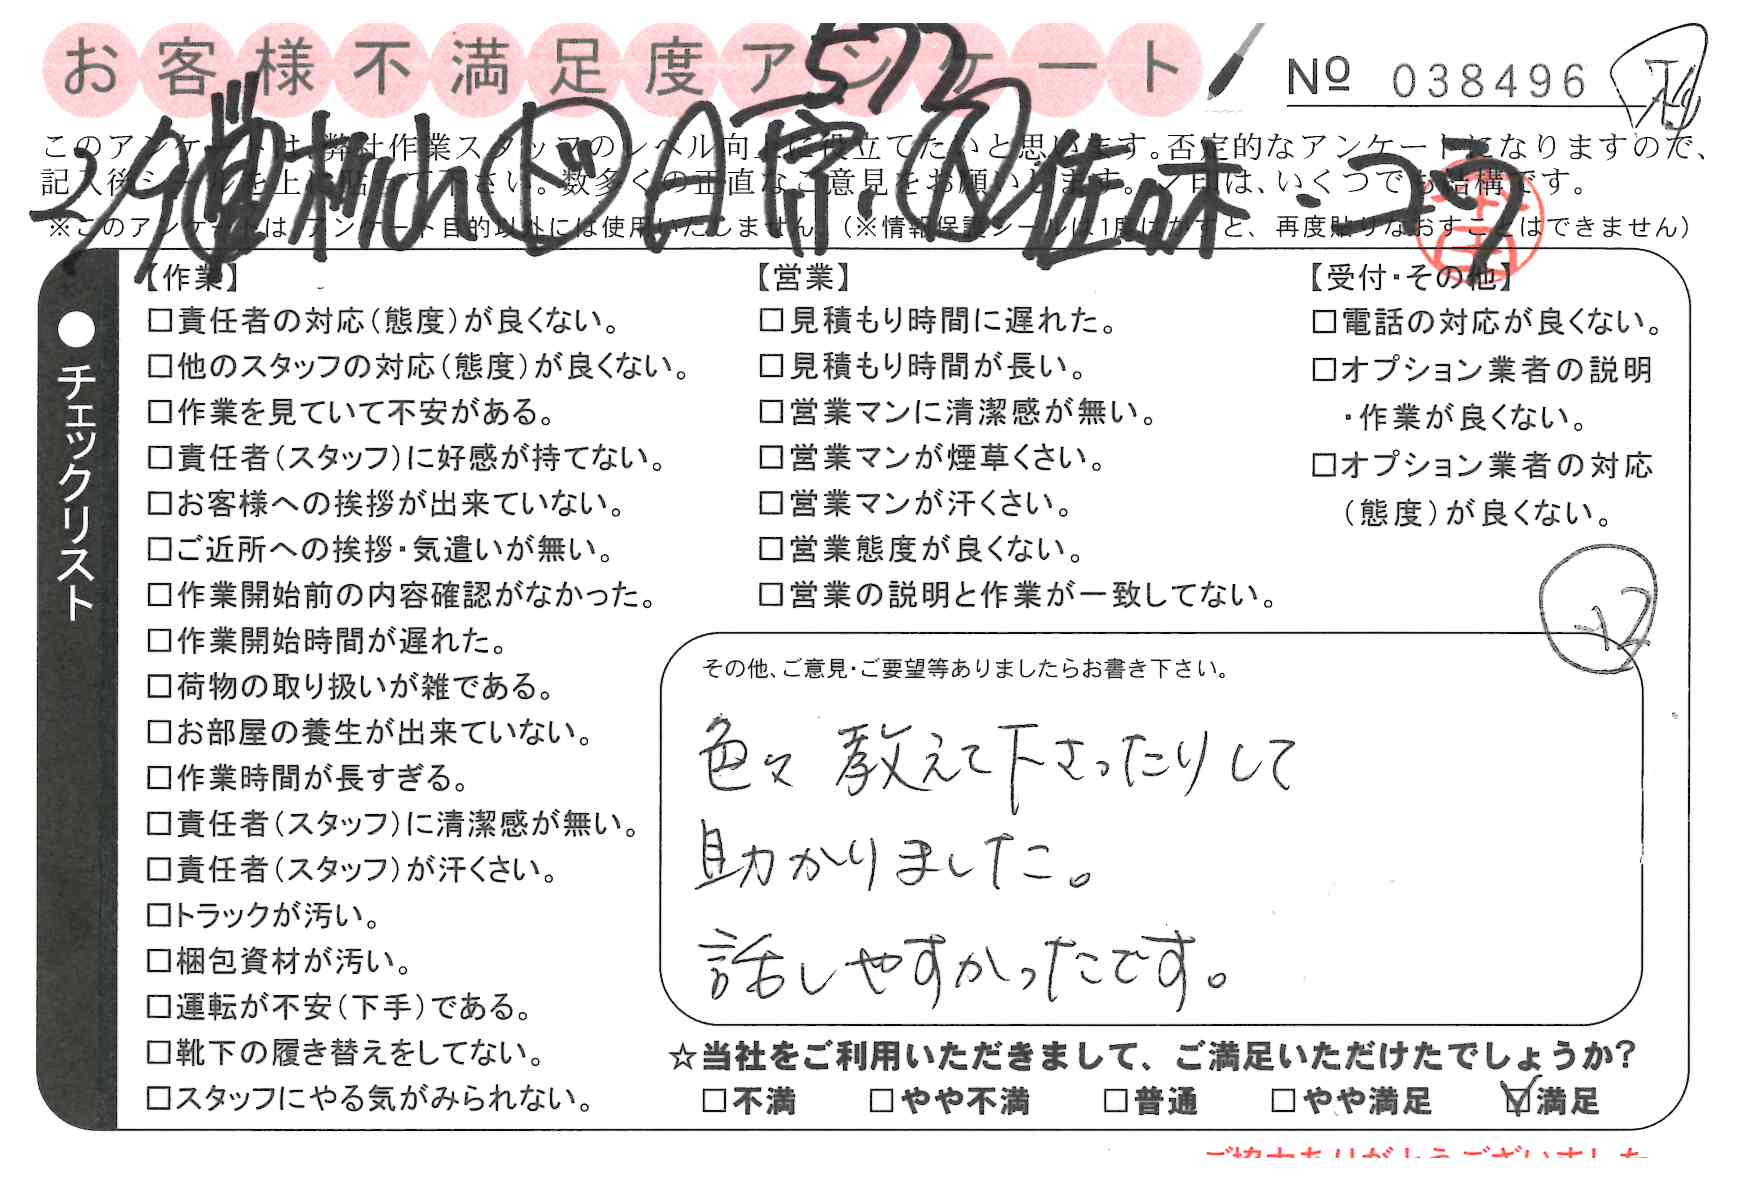 お客様不満足度アンケート
Nº 038496
このアンケートは、弊社作業スタッフのレベル向上に役立てたいと思います。否定的なアンケートになりますので、
記入後シールを上に貼って下さい。数多くの正直なご意見をお願いします。✓印は、いくつでも結構です。
※このアンケートは、アンケート目的以外には使用いたしません。(※情報保護シールは1度はがすと、再度貼りなおすことはできません)
●チェックリスト
【作業】
□責任者の対応(態度)が良くない。
□他のスタッフの対応(態度)が良くない。
□作業を見ていて不安がある。
□責任者(スタッフ)に好感が持てない。
□お客様への挨拶が出来ていない。
□ご近所への挨拶・気遣いが無い。
□作業開始前の内容確認がなかった。
□作業開始時間が遅れた。
□荷物の取り扱いが雑である。
□お部屋の養生が出来ていない。
□作業時間が長すぎる。
□責任者(スタッフ)に清潔感が無い。
□責任者(スタッフ)が汗くさい。
□トラックが汚い。
□梱包資材が汚い。
□運転が不安(下手)である。
□靴下の履き替えをしてない。
□スタッフにやる気がみられない。
【営業】
□見積もり時間に遅れた。
□見積もり時間が長い。
□営業マンに清潔感が無い。
□営業マンが煙草くさい。
□営業マンが汗くさい。
□営業態度が良くない。
□営業の説明と作業が一致してない。
【受付・その他】
□電話の対応が良くない。
□オプション業者の説明
・作業が良くない。
□オプション業者の対応
(態度)が良くない。
その他、ご意見・ご要望等ありましたらお書き下さい。
色々教えて下さったりして
助かりました。
話しやすかったです。
☆当社をご利用いただきまして、ご満足いただけたでしょうか?
□不満 □やや不満 □普通 □やや満足 ☑満足
ご協力ありがとうございました